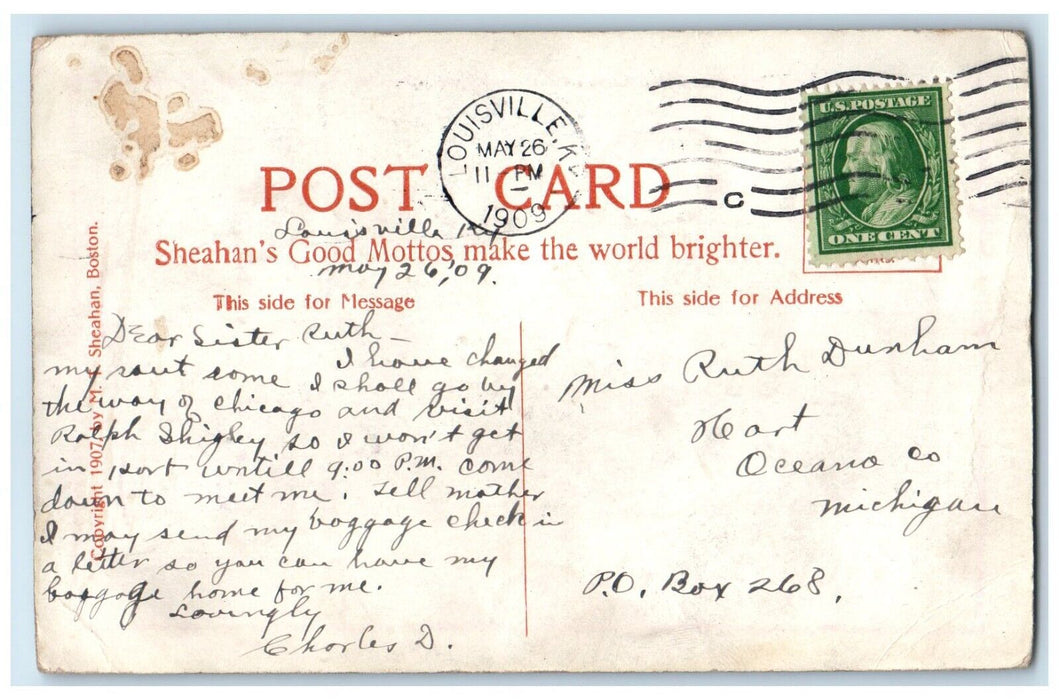 LOUISVILLE, K
MAY 26
11 - PM
1909
C
U.S. POSTAGE
ONE CENT
POST CARD
Louisville Ky
Sheahan's Good Mottos make the world brighter.
May 26, '09.
This side for Message
This side for Address
Copyright 1907, by M. T. Sheahan, Boston.
Dear Sister Ruth —
I have changed
my rout some I shall go by
the way of Chicago and visit
Ralph Shigley so I won't get
in port untill 9:00 P.M. come
down to meet me. Tell mother
I may send my baggage check in
a letter so you can have my
baggage home for me.
Lovingly
Charles D.
Miss Ruth Dunham
Hart
Oceana Co
Michigan
P.O. Box 268.